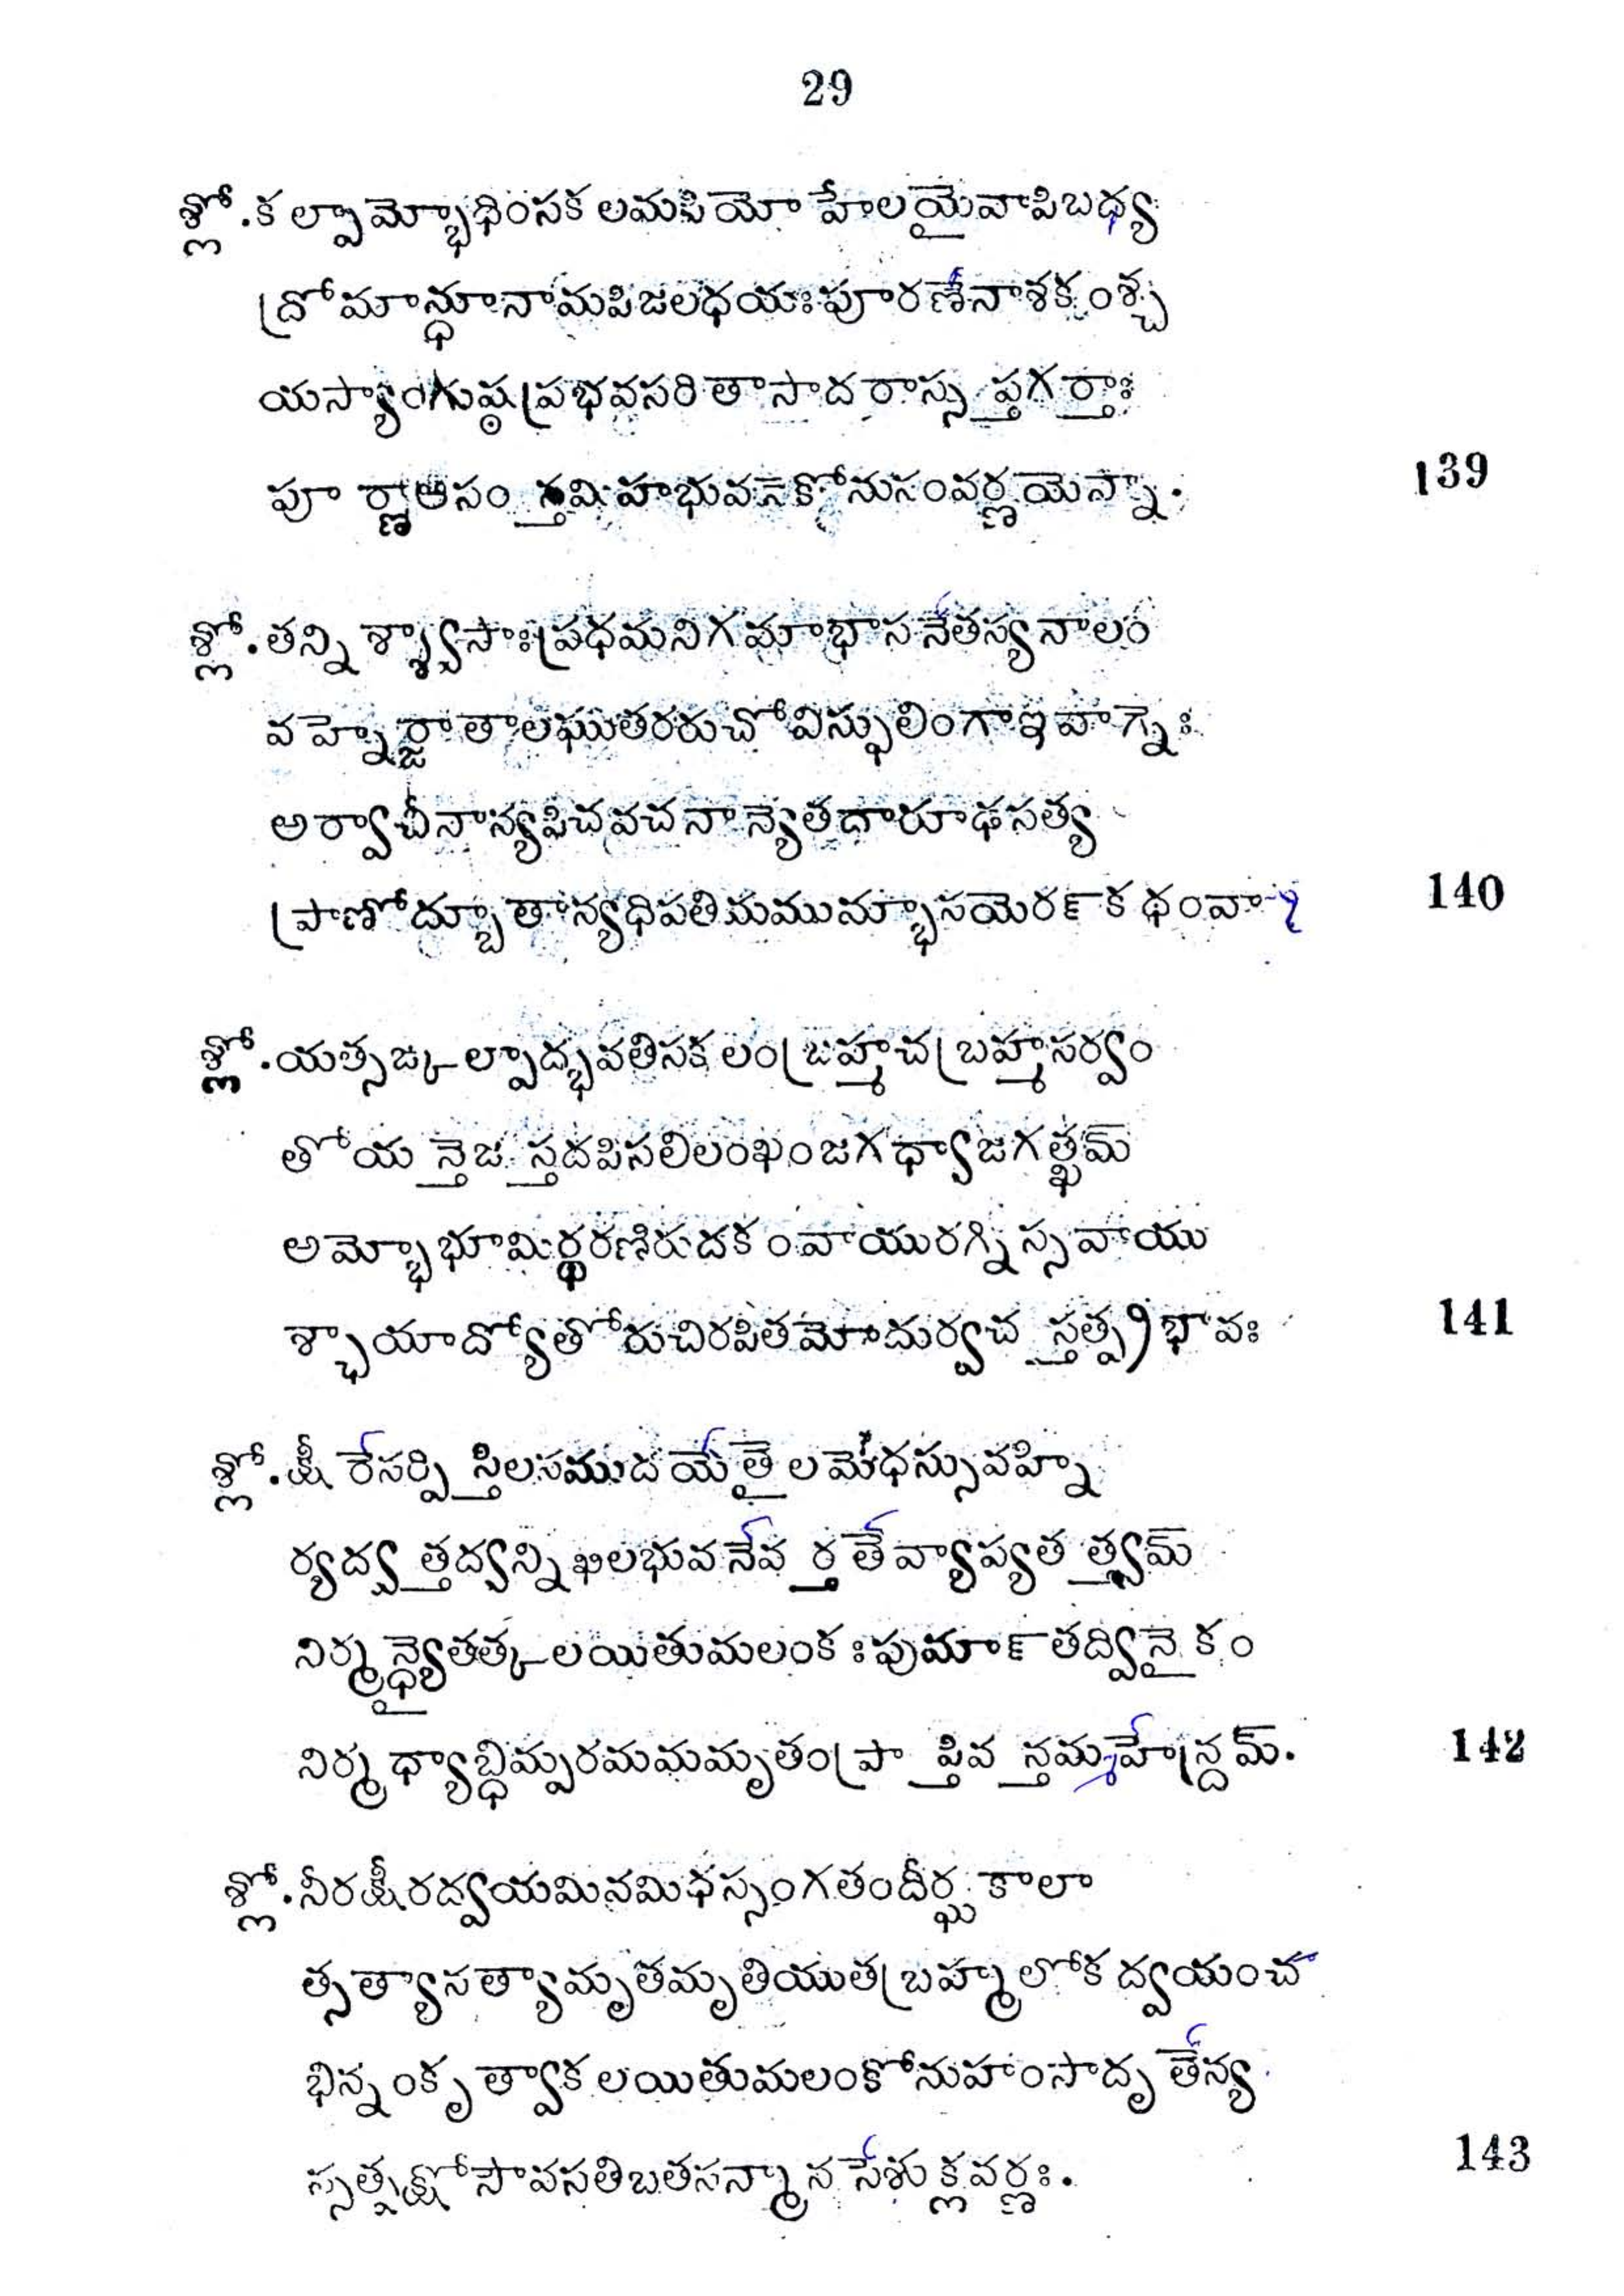 29
శ్లో. కల్పామ్భోధింసకలమపియో హేలయైవాపిబధ్య
ద్రోమాన్ధూనామపిజలధయఃపూరణేనాశకంశ్చ
యస్యాంగుష్ఠప్రభవసరితాసాదరాస్సప్తగర్తాః
పూర్ణాఆసంస్తమిహభువనేకోనుసంవర్ణయెన్నా. 139
శ్లో. తన్నిశ్శ్వాసాఃప్రధమనిగమాభాసనేతస్యనాలం
వహ్నేర్జాతాలఘుతరరుచోవిస్ఫులింగాఇవాగ్నెః
అర్వాచీనాన్యపిచవచనాన్యెతదారూఢసత్య
ప్రాణోద్బూతాన్యధిపతిమమున్భాసయెరన్ కథంవా 140
శ్లో. యత్సఙ్కల్పాద్భవతిసకలంబ్రహ్మచబ్రహ్మసర్వం
తోయన్తెజస్తదపిసలిలంఖంజగధ్వాజగత్ఖమ్
అమ్భోభూమిర్ధరణిరుదకంవాయురగ్నిస్సవాయు
శ్ఛాయాద్యోతోరుచిరపితమోదుర్వచస్తత్ప్రభావః 141
శ్లో. క్షీరేసర్పిస్తిలసముదయేతైలమేధస్సువహ్ని
ర్యద్వత్తద్వన్నిఖిలభువనేవర్తతేవ్యాప్యతత్త్వమ్
నిర్మన్థ్యైతత్కలయితుమలంకఃపుమాన్ తద్వినైకం
నిర్మధ్యాబ్ధిమ్పరమమమృతంప్రాప్తివన్తమ్మహేన్ద్రమ్. 142
శ్లో. నీరక్షీరద్వయమినమిధస్సంగతందీర్ఘకాలా
త్సత్యాసత్యామృతమృతియుతబ్రహ్మలోకద్వయంచ
భిన్నంకృత్వాకలయితుమలంకోనుహంసాదృతేన్య
స్సత్పక్షోసౌవసతిబతసన్మానసేశుక్లవర్ణః. 143